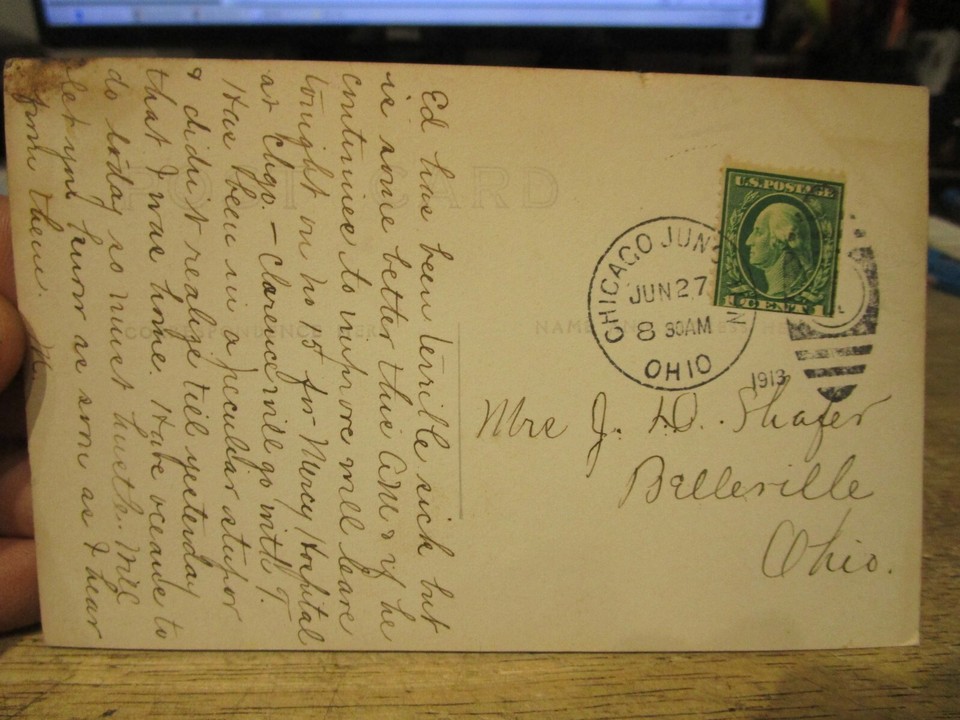 Ed has been terrible sick but
is some better this AM & if he
continues to improve will leave
tonight on no 15 for Mercy Hospital
at Chgo. - Clarence will go with
Has been in a peculiar stupor
& didn't realize till yesterday
that I was home. Have oceans to
do today so must hustle. Will
let you know as soon as I hear
from them. M.
POST CARD
CORRESPONDENCE HERE
NAME AND ADDRESS HERE
U.S. POSTAGE
1 CENT 1
CHICAGO JUN
JUN 27
8 30AM
OHIO
1913
Mrs J. D. Shafer
Belleville
Ohio.